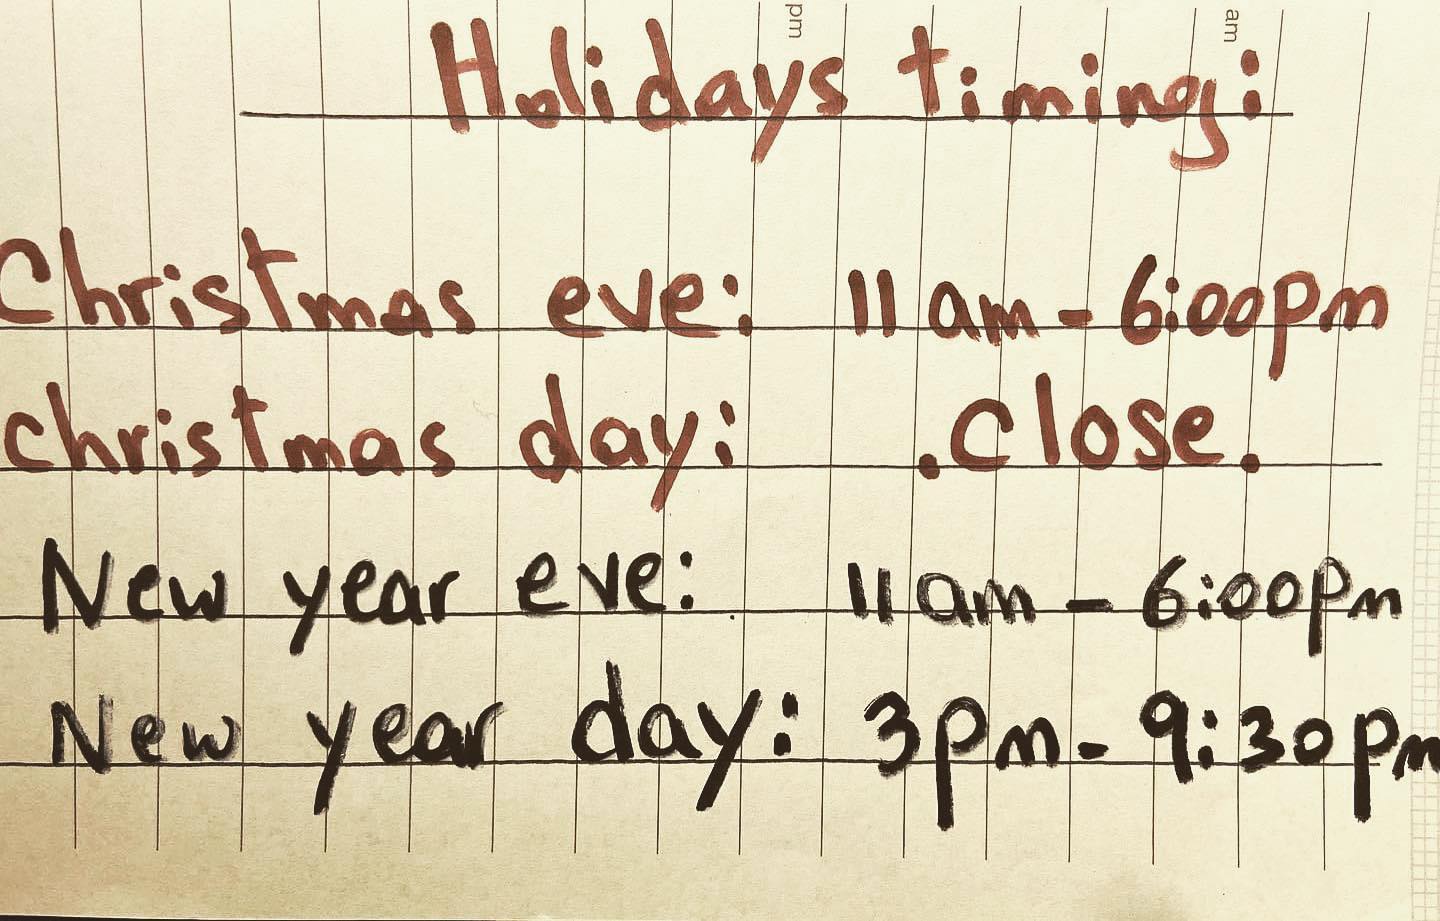 pm
am
Holidays timing:
Christmas eve: 11am - 6:00pm
christmas day: .Close.
New year eve: 11am - 6:00pm
New year day: 3pm - 9:30pm